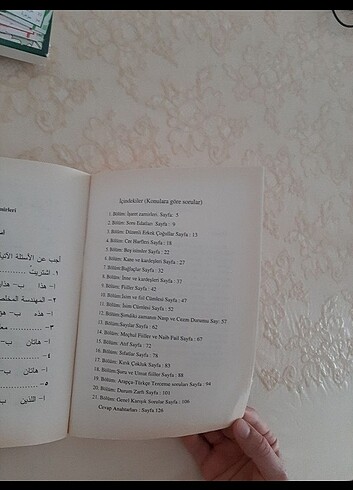 İçindekiler (Konulara göre sorular)
1. Bölüm: İşaret zamirleri. Sayfa: 5
2. Bölüm: Soru Edatları Sayfa : 9
3. Bölüm: Düzenli Erkek Çoğullar Sayfa : 13
4. Bölüm: Cer Harfleri Sayfa : 18
5. Bölüm: Beş isimler Sayfa : 22
6. Bölüm: Kane ve kardeşleri Sayfa : 27
7. Bölüm: Bağlaçlar Sayfa : 32
8. Bölüm: İnne ve kardeşleri Sayfa : 37
9. Bölüm: Fiiller Sayfa : 42
10. Bölüm: İsim ve fiil Cümlesi Sayfa : 47
11. Bölüm: İsim Cümlesi Sayfa : 52
12. Bölüm: Şimdiki zamanın Nasp ve Cezm Durumu Say: 57
13. Bölüm: Sayılar Sayfa : 62
14. Bölüm: Meçhul Fiiller ve Naib Fail Sayfa : 67
15. Bölüm: Atıf Sayfa : 72
16. Bölüm: Sıfatlar Sayfa : 78
17. Bölüm: Kırık Çokluk Sayfa : 83
18. Bölüm: Şuru ve Umut fiiller Sayfa : 88
19. Bölüm: Arapça-Türkçe Tercüme soruları Sayfa : 94
20. Bölüm: Durum Zarfı Sayfa : 101
21. Bölüm: Genel Karışık Sorular Sayfa : 106
Cevap Anahtarları : Sayfa 126
أجب عن الأسئلة الآتية
١. اشتريت
أ- هذا ب-
٢. المهندسة
أ- هذه ب-
٣.
أ- هاتان ب-
٤.
أ- هاتان ب-
٥.
أ- اللذين ب-